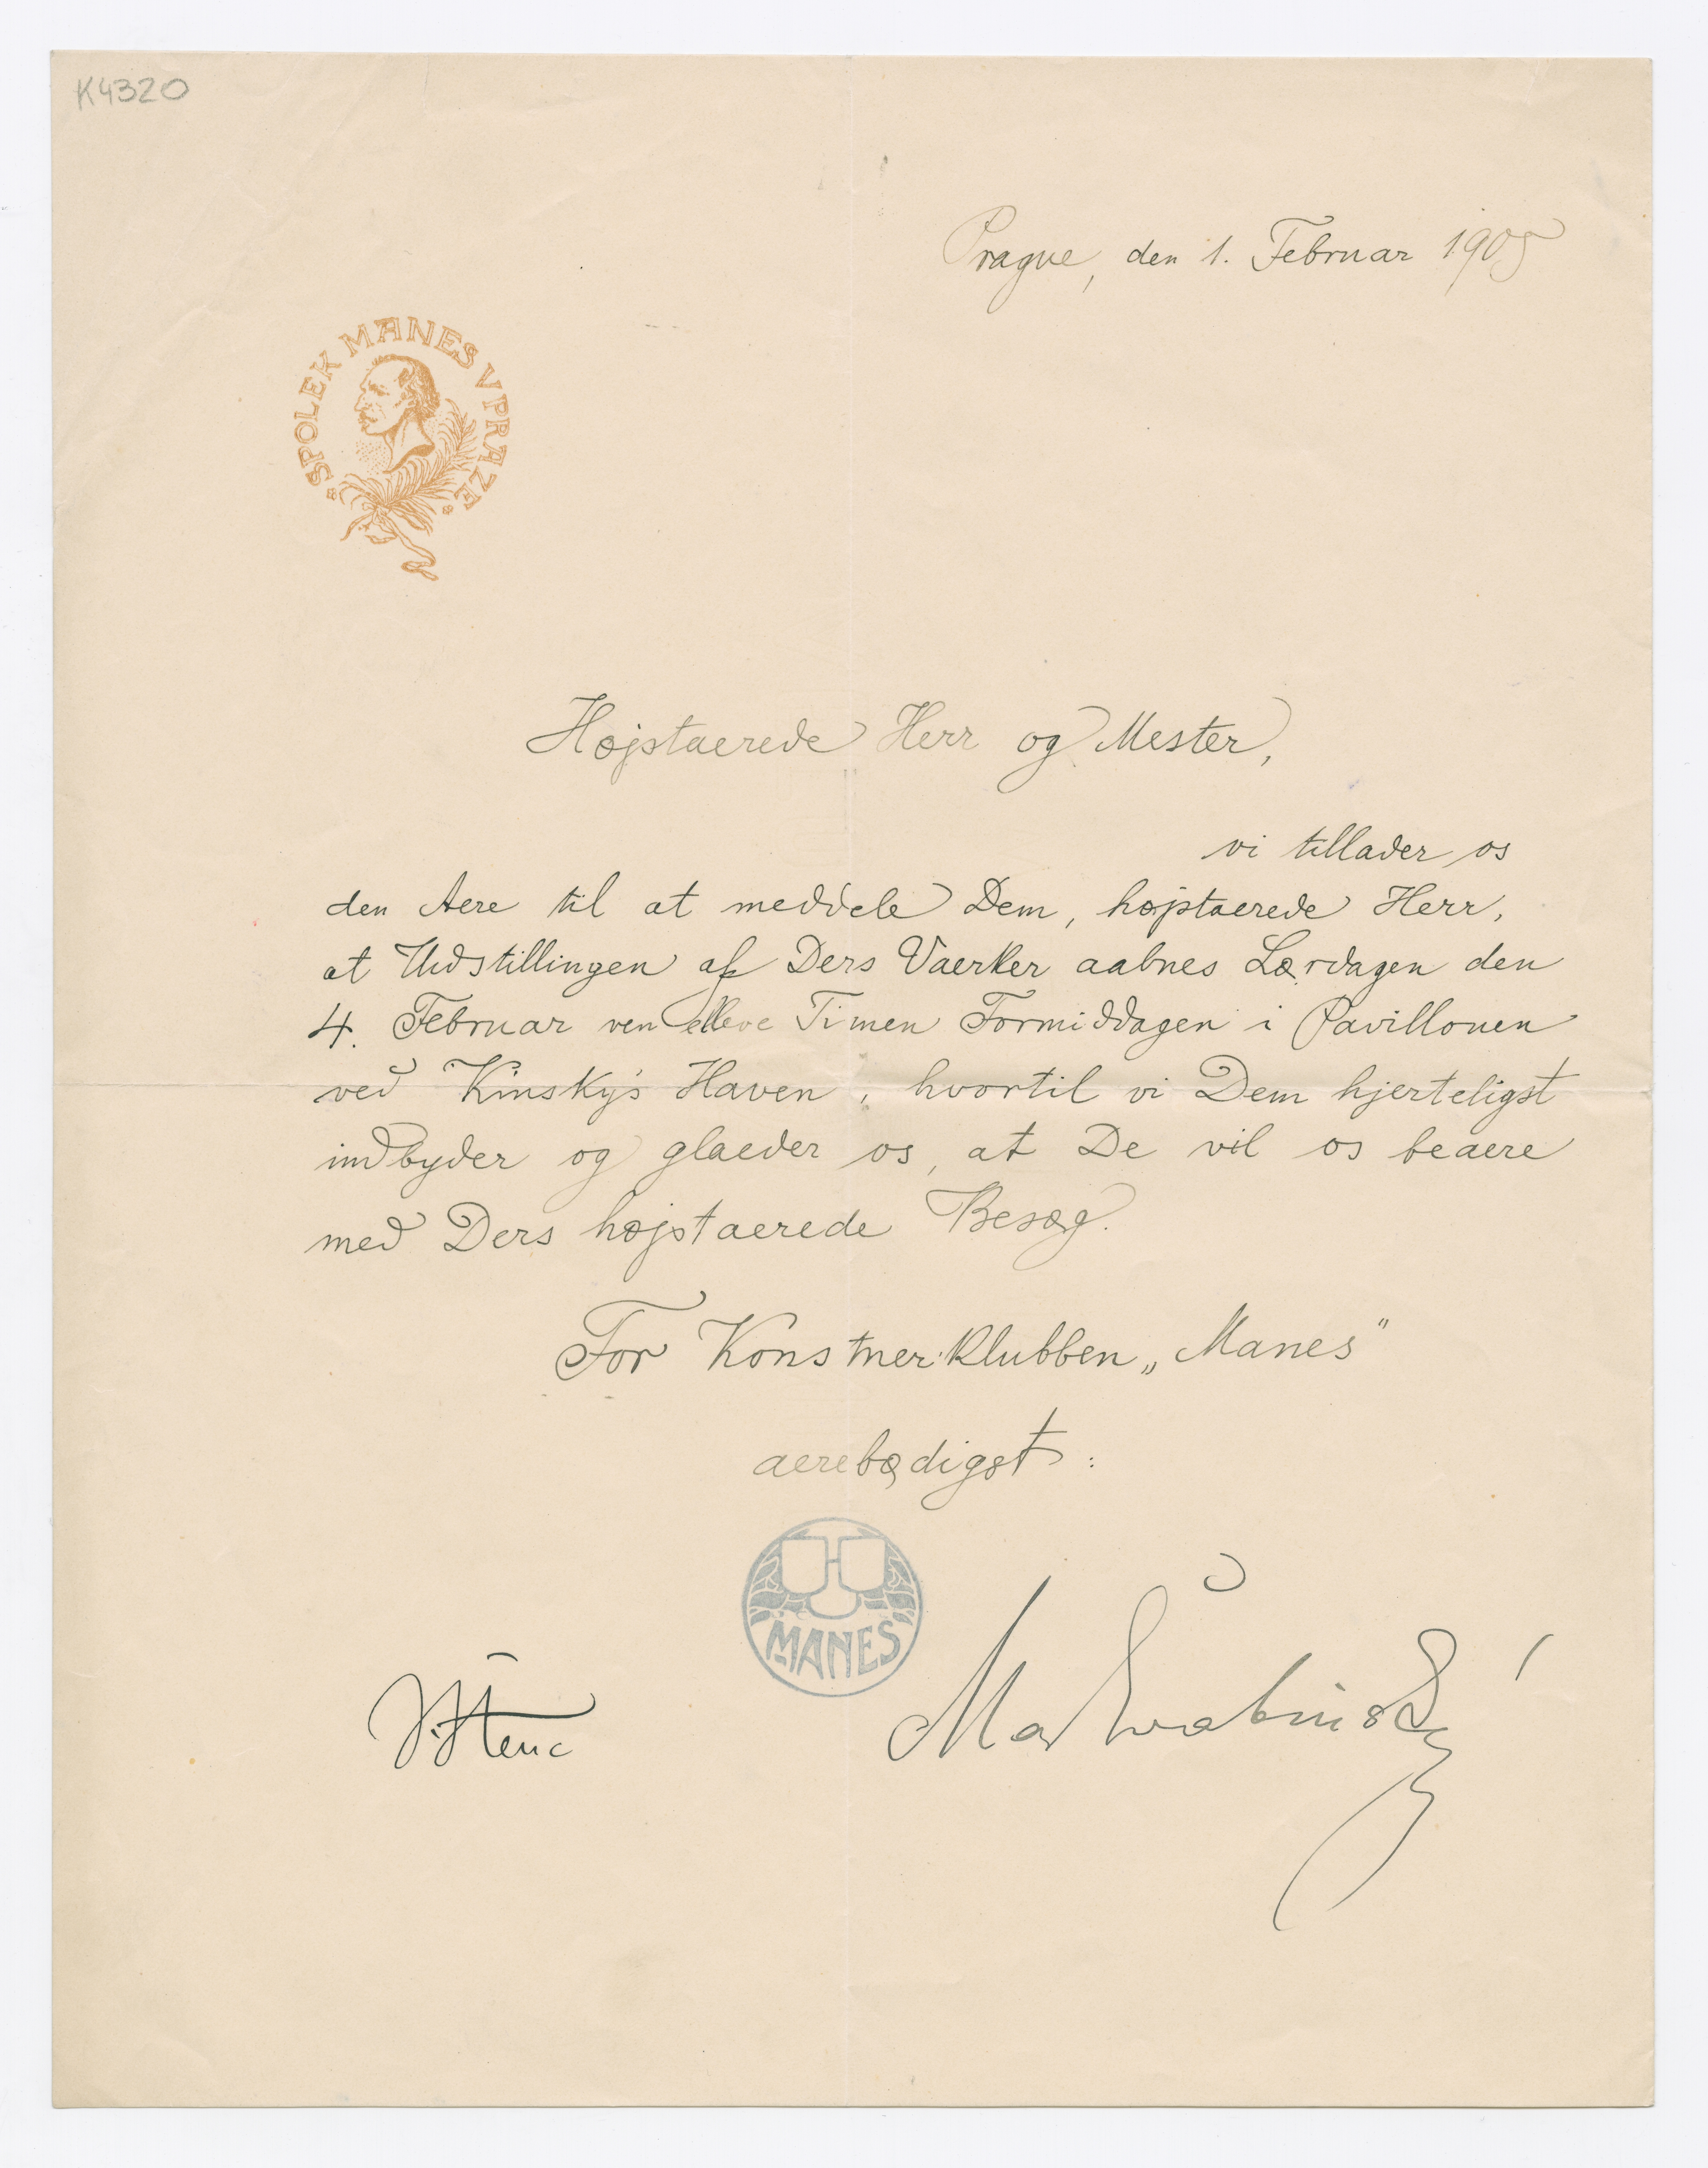 K4320
Prague, den 1. Februar 1905
SPOLEK MANES V PRAZE
Højstaerede Herr og Mester,
vi tillader os
den Aere til at meddele Dem, højstaerede Herr,
at Udstillingen af Ders Vaerker aabnes Lørdagen den
4. Februar ven elleve Timen Formiddagen i Pavillonen
ved Kinsky's Haven, hvortil vi Dem hjerteligst
indbyder og glaeder os, at De vil os beaere
med Ders højstaerede Besøg.
For Konstnerklubben „Manes"
aerebødigst:
MÁNES
J. Štenc
Max Švabinský